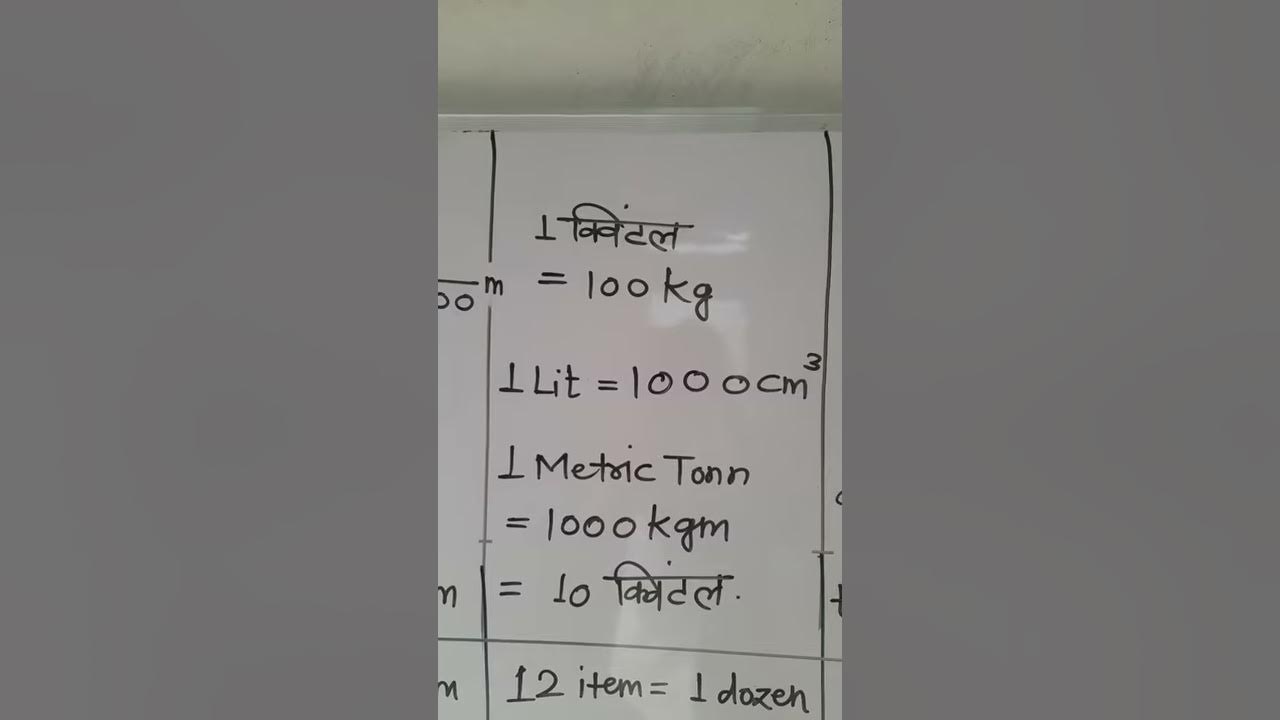 1 क्विंटल
= 100 kg
m
00
1 Lit = 1000 cm³
1 Metric Tonn
= 1000 kgm
= 10 क्विंटल.
12 item = 1 dozen